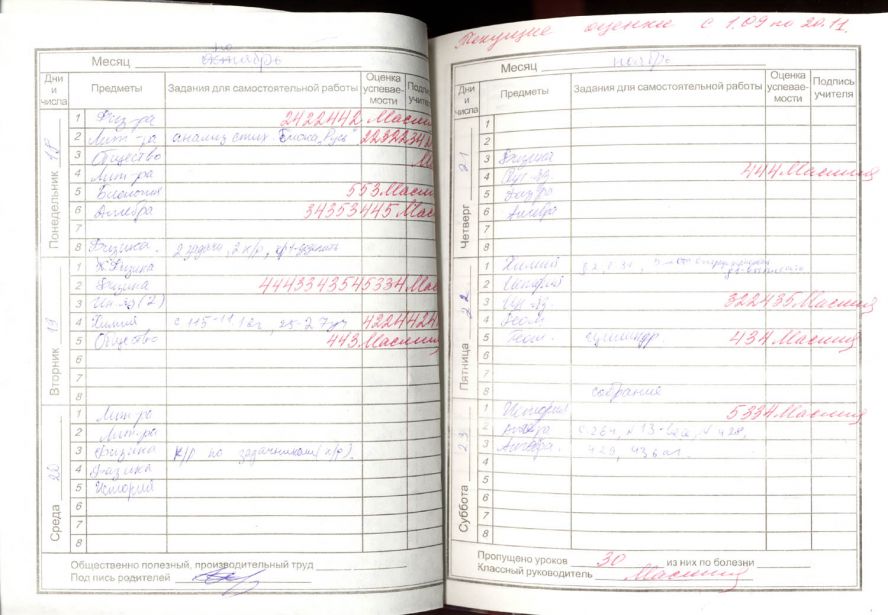 Месяц ноябрь
Дни и числа Предметы Задания для самостоятельной работы Оценка успеваемости Подпись учителя
Понедельник 18
1 Физ-ра 2422442 Маслиц
2 Лит-ра анализ стих. Блока "Русь" 2232234
3 Общество
4 Лит-ра
5 Биология 553
6 Алгебра 34353445
7
8 Физика. 2 задачи, 2 к/р,
Вторник 19
1 Физика
2 Физика 4443343545334
3 Ин.яз (2)
4 Химия с 115-11. 25-27 422442
5 Общество 443
6
7
8
Среда 20
1 Лит-ра
2 Лит-ра
3 Физика к/р по задачникам (к/р).
4 Физика
5 История
6
7
8
Общественно полезный, производительный труд
Под пись родителей
Текущие оценки с 1.09 по 20.11.
Месяц ноябрь
Дни и числа Предметы Задания для самостоятельной работы Оценка успеваемости Подпись учителя
Четверг 21
1
2
3 Физика
4 Рус.яз. 444
5 Физ-ра
6 Алгебра
7
8
Пятница 22
1 Химия
2 История
3 Ин.яз 322435
4 Геом
5 Геом. цилиндр. 434
6
7
8 собрание
Суббота 23
1 История 5334
2 с 264, 428,
3 Алгебра. 429, 436
4
5
6
7
8
Пропущено уроков 30 из них по болезни
Классный руководитель